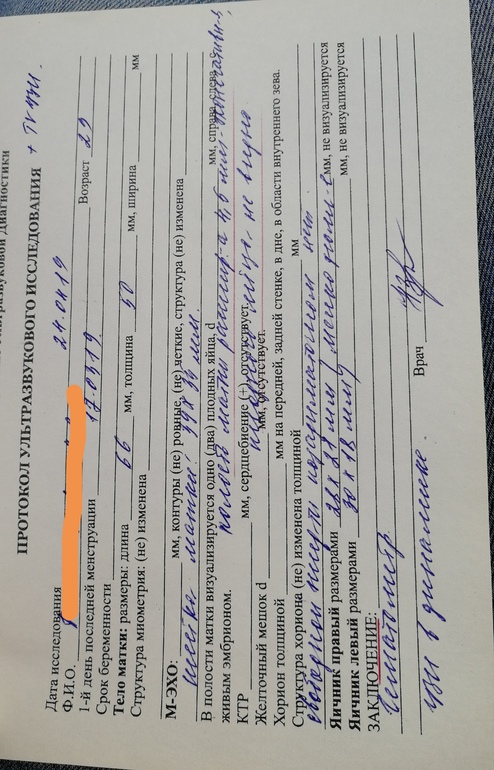 ультразвуковой диагностики
ПРОТОКОЛ УЛЬТРАЗВУКОВОГО ИССЛЕДОВАНИЯ + TV УЗИ.
Дата исследования 24.04.19
Ф.И.О.
1-й день последней менструации 17.03.19 Возраст 29
Срок беременности
Тело матки: размеры: длина 66 мм, толщина 50 мм, ширина мм
Структура миометрия: (не) изменена
М-ЭХО: мм, контуры (не) ровные, (не) четкие, структура (не) изменена
шейка матки: 39х36 мм.
В полости матки визуализируется одно (два) плодных яйца, d мм, справа, слева с
живым эмбрионом. полость матки расшир. 4,6 мм
КТР мм, сердцебиение (+) отсутствует.
плодного яйца не видно
Желточный мешок d мм, отсутствует.
Хорион толщиной мм на передней, задней стенке, в дне, в области внутреннего зева.
Структура хориона (не) изменена толщиной мм
свободной нет
Яичник правый размерами мм, не визуализируется
Яичник левый размерами 30х18 мм мм, не визуализируется
ЗАКЛЮЧЕНИЕ:
узи в динамике.
Врач